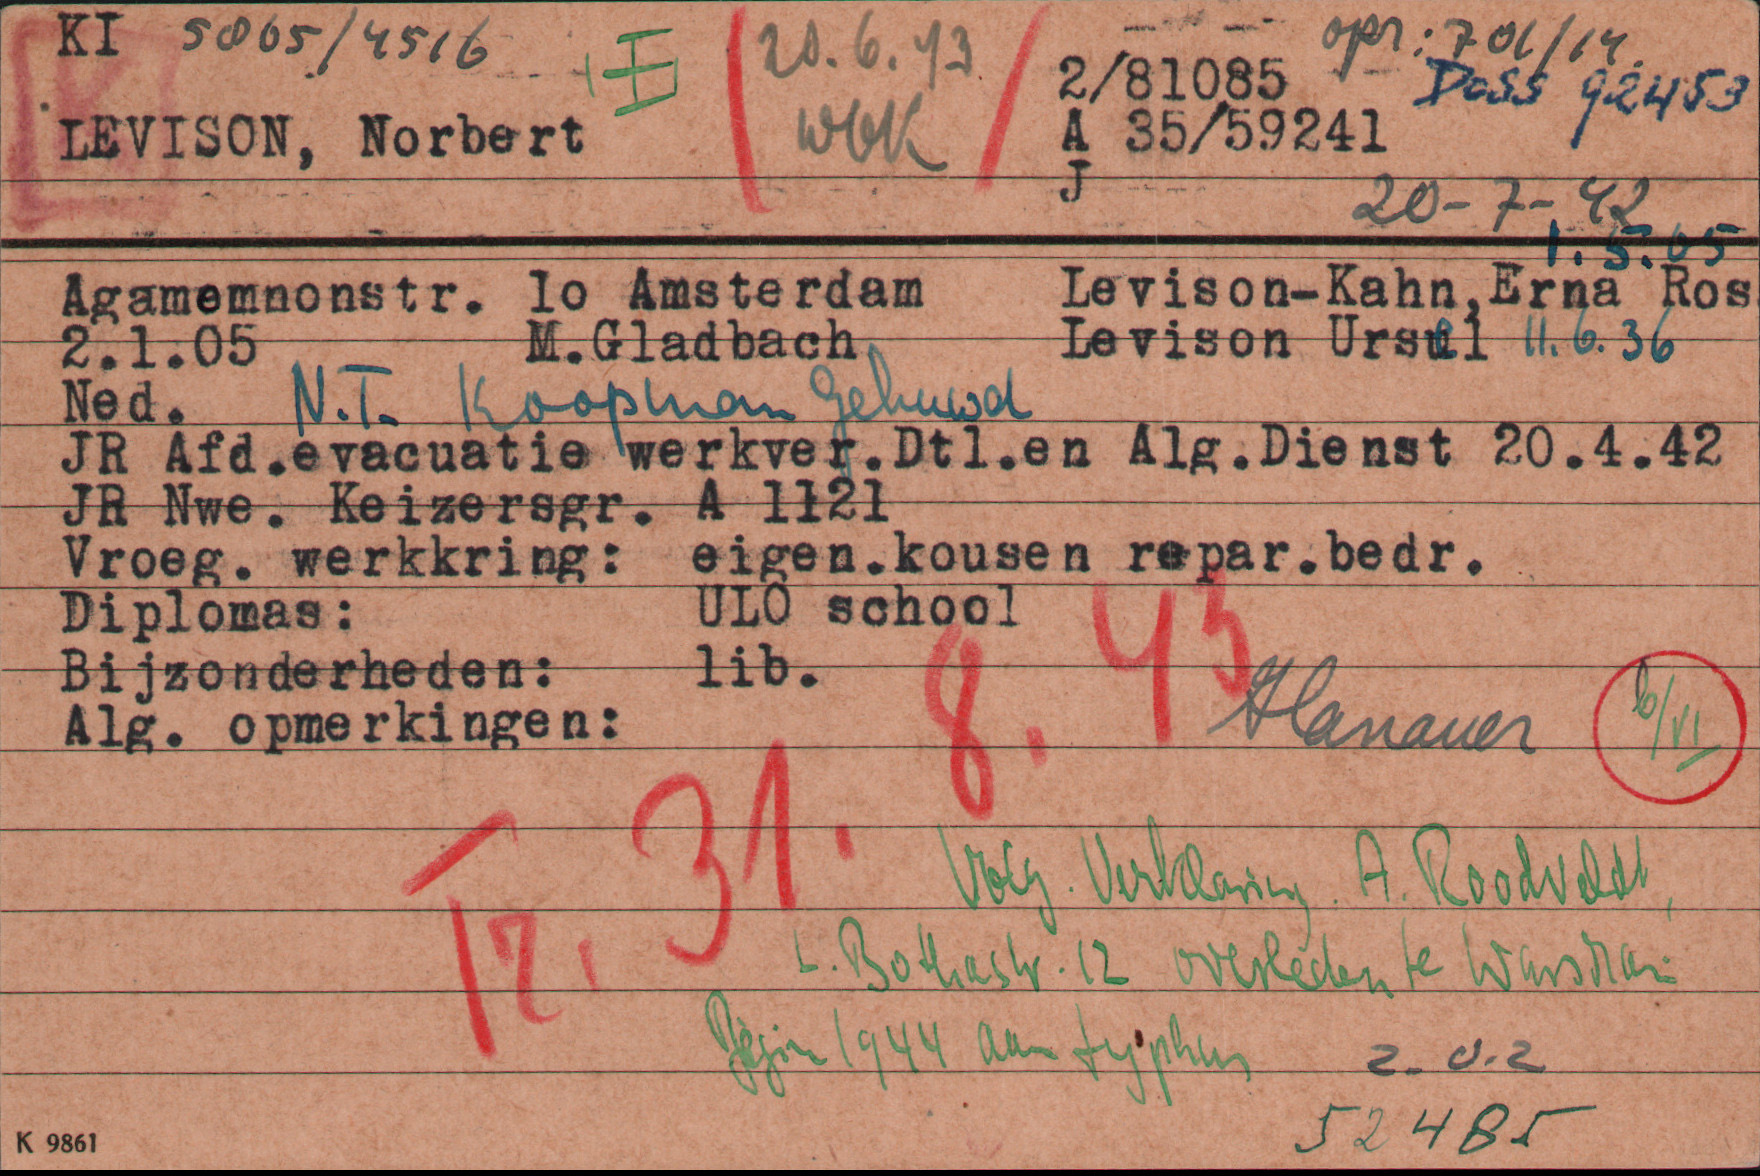 KI 5865/4516
II
20.6.43
WbK
opr: 701/14.
2/81085
Doss 92453
LEVISON, Norbert
A 35/59241
J
20-7-42
1.5.05
Agamemnonstr. 1o Amsterdam Levison-Kahn,Erna Ros
2.1.05 M.Gladbach Levison Ursul 11.6.36
Ned. N.T. Koopman Gehuwd
JR Afd.evacuatie werkver.Dtl.en Alg.Dienst 20.4.42
JR Nwe. Keizersgr. A 1121
Vroeg. werkkring: eigen.kousen repar.bedr.
Diplomas: ULO school
Bijzonderheden: lib.
Alg. opmerkingen:
Hanauer
6/VI
Tr. 31. 8. 43
Volg. Verklaring. A. Roodveldt,
L. Bothastr. 12 overleden te Warschau
Begin 1944 aan typhus
z.o.z
52485
K 9861